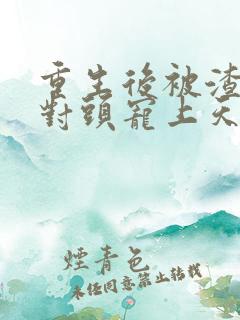 重生後被渣
對頭寵上天
煙青色
未任同意禁止转载